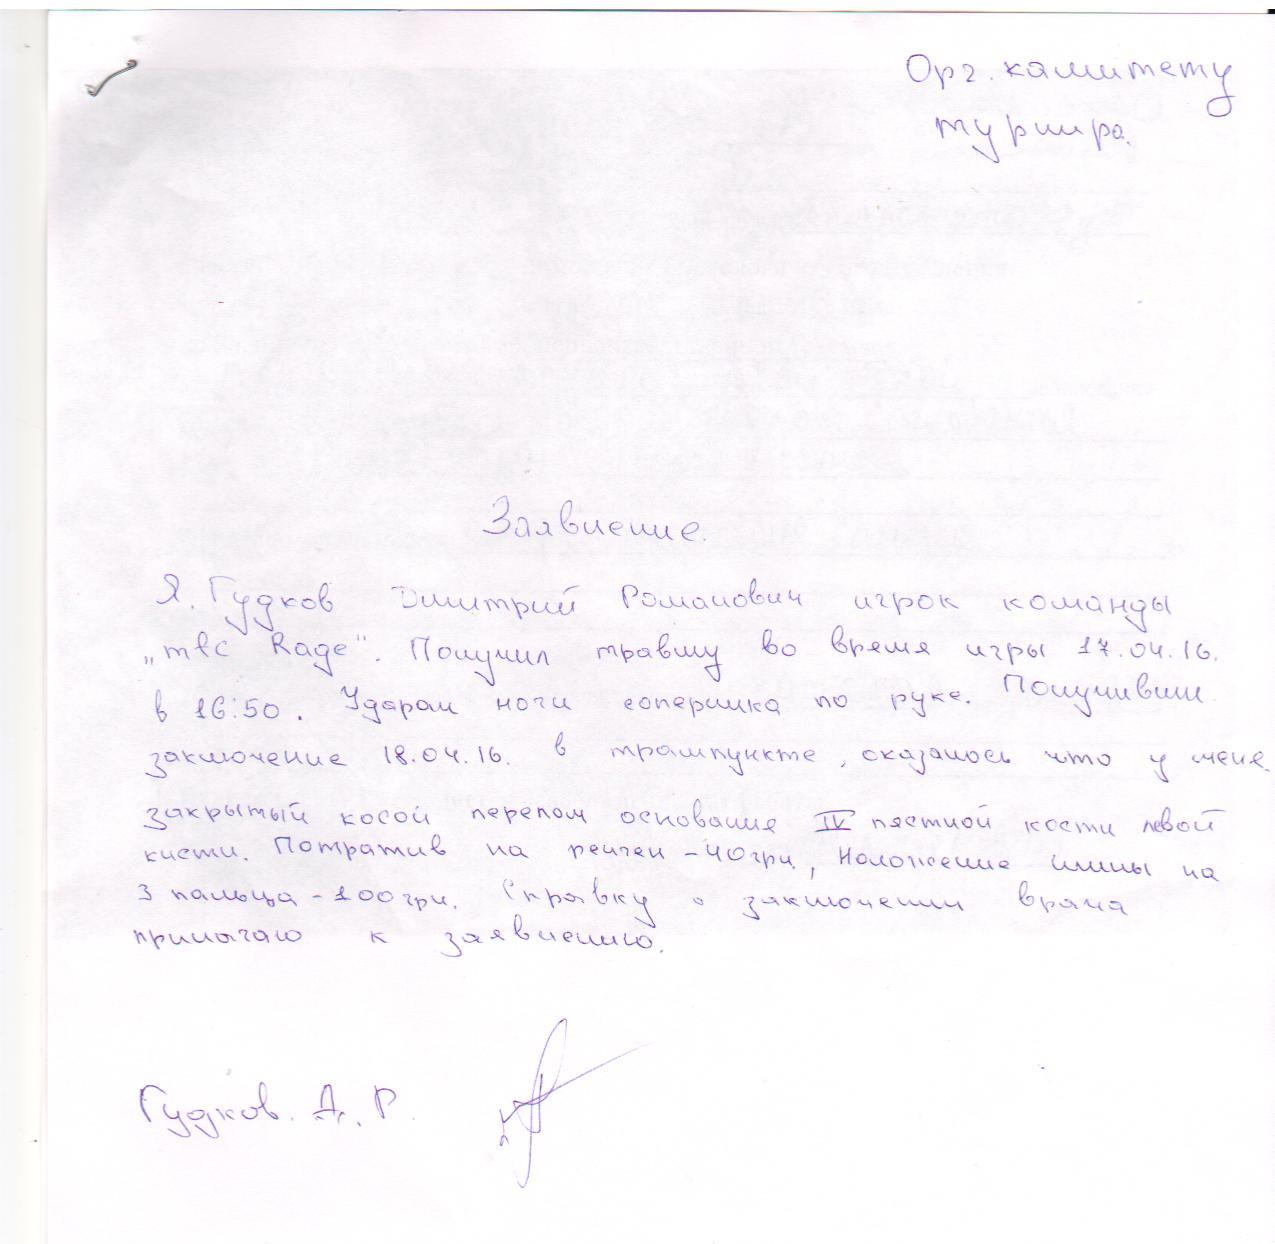 Орг. камитету
турнира.
Заявление.
Я. Гудков Дмитрий Романович игрок команды
„mfc Rage". Получил травму во время игры 17.04.16.
в 16:50. Ударом ноги соперника по руке. Получивши
заключение 18.04.16. в трампункте, оказалось что у меня
закрытый косой перелом основания IV пястной кости левой
кисти. Потратив на ренген - 40грн, Наложение шины на
3 пальца - 100грн. Справку о заключении врача
прилагаю к заявлению.
Гудков. Д. Р.